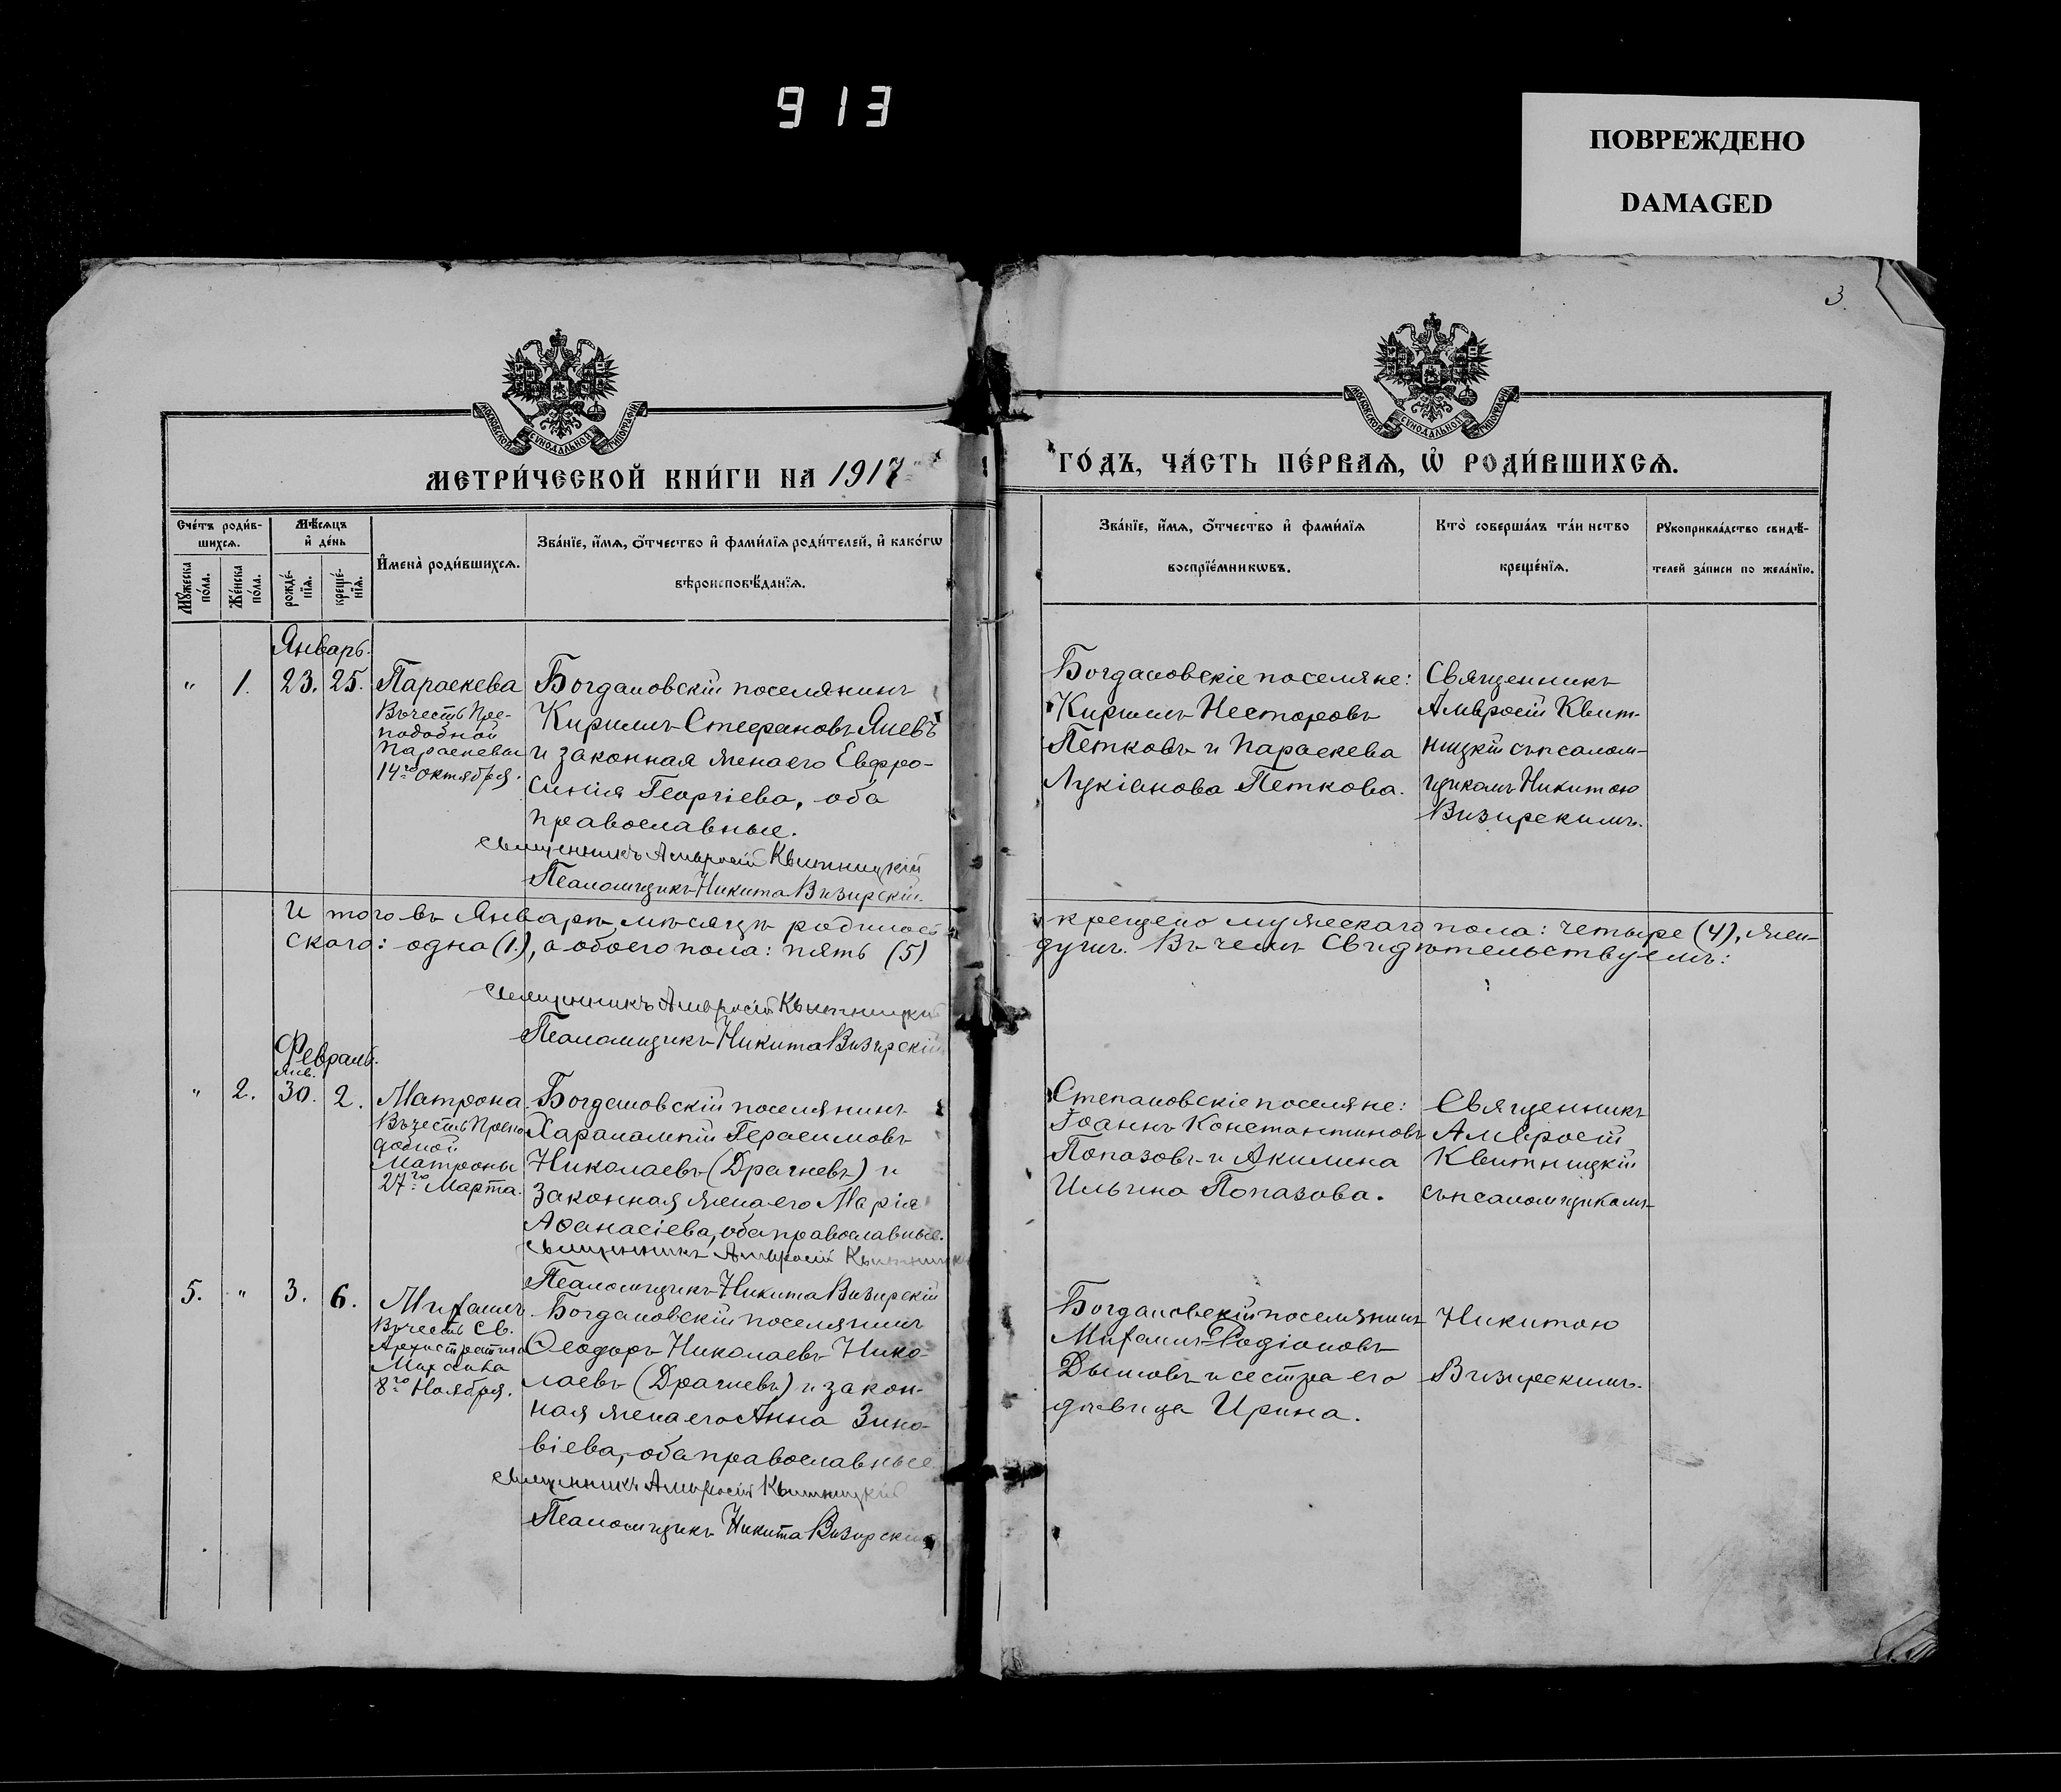 913
ПОВРЕЖДЕНО
DAMAGED
3
МОСКОВСКОЙ СУНОДАЛЬНОЙ ТИПОГРАФІИ
МОСКОВСКОЙ СУНОДАЛЬНОЙ ТИПОГРАФІИ
МЕТРИ́ЧЕСКОЙ КНИ́ГИ НА 1917
ГО́ДЪ, ЧА́СТЬ ПЕ́РВАѦ, Ѡ҆ РОДИ́ВШИХСѦ.
Сче́тъ роди́в-
шихсѧ.
Мꙋ́жеска по́ла.
Же́нска по́ла.
Мѣ́сѧцъ
и҆ де́нь
рожде́-
нїѧ.
креще́-
нїѧ.
И҆мена̀ роди́вшихсѧ.
Зва́нїе, и҆́мѧ, ѻ҆́тчество и҆ фами́лїѧ роди́телей, и҆ како́гѡ
вѣроисповѣ́данїѧ.
Зва́нїе, и҆́мѧ, ѻ҆́тчество и҆ фами́лїѧ
воспрїе́мникѡвъ.
Кто̀ соверша́лъ та́инство
креще́нїѧ.
Рꙋкоприкла́дство свидѣ́-
телей за́писи по жела́нїю.
Январь.
" 1. 23. 25.
Параскева
Въ честь Пре-
подобной
Параскевы
14го октября.
Богдановскій поселянинъ
Кириллъ Стефановъ Яневъ
и законная жена его Евфро-
синія Георгіева, оба
православные.
Священникъ Амвросій Квитницкій
Псаломщикъ Никита Визирскій.
Богдановскіе поселяне:
Кириллъ Несторовъ
Петковъ и Параскева
Лукіанова Петкова.
Священникъ
Амвросій Квит-
ницкій съ псалом-
щикомъ Никитою
Визирскимъ.
Итого въ Январѣ мѣсяцѣ родилось и крещено мужескаго пола: четыре (4), жен-
скаго: одна (1), а обоего пола: пять (5) душъ. Въ чемъ свидѣтельствуемъ:
Священникъ Амвросій Квитницкій
Псаломщикъ Никита Визирскій
Февраль.
Янв.
" 2. 30. 2.
Матрона
Въ честь Препо
добной
Матроны
27го Марта.
Богдановскій поселянинъ
Харалампій Герасимовъ
Николаевъ (Драгневъ) и
законная жена его Марія
Аѳанасіева, оба православные.
Священникъ Амвросій Квитницкій
Псаломщикъ Никита Визирскій
Степановскіе поселяне:
Іоаннъ Константиновъ
Попазовъ и Акилина
Ильина Попазова.
Священникъ
Амвросій
Квитницкій
съ псаломщикомъ
5. " 3. 6.
Михаилъ
Въ честь Св.
Архистратига
Михаила
8го Ноября.
Богдановскій поселянинъ
Ѳеодоръ Николаевъ Нико-
лаевъ (Драгневъ) и закон-
ная жена его Анна Зино-
віева, оба православные
Священникъ Амвросій Квитницкій
Псаломщикъ Никита Визирскій
Богдановскій поселянинъ
Михаилъ Родіоновъ
Дымовъ и сестра его
дѣвица Ирина.
Никитою
Визирскимъ.